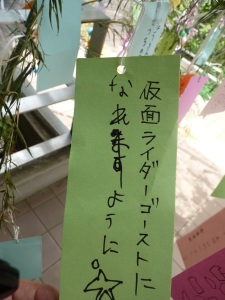 仮面ライダーゴーストに
なれますように